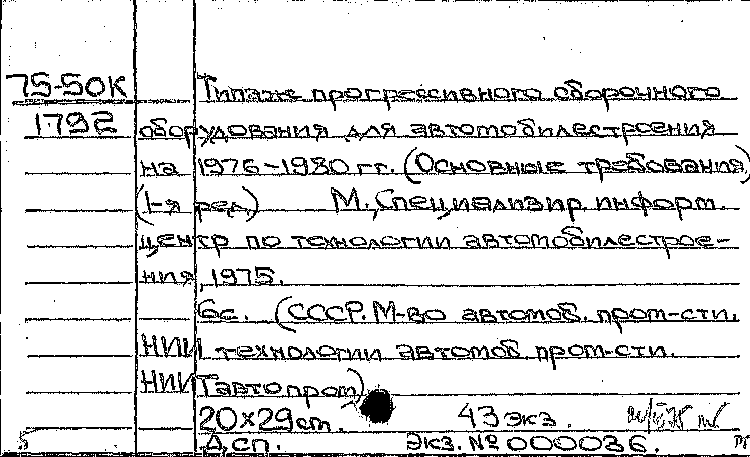 75-50К Типаж прогрессивного сборочного
1792 оборудования для автомобилестроения
на 1976-1980 гг. (Основные требования)
(1-я ред.) М., Специализир. информ.
центр по технологии автомобилестрое-
ния, 1975.
6с. (СССР. М-во автомоб. пром-сти.
НИИ технологии автомоб. пром-сти.
НИИТавтопром)
20х29 cm. 43 экз.
Д.сп. Экз. № 000036.